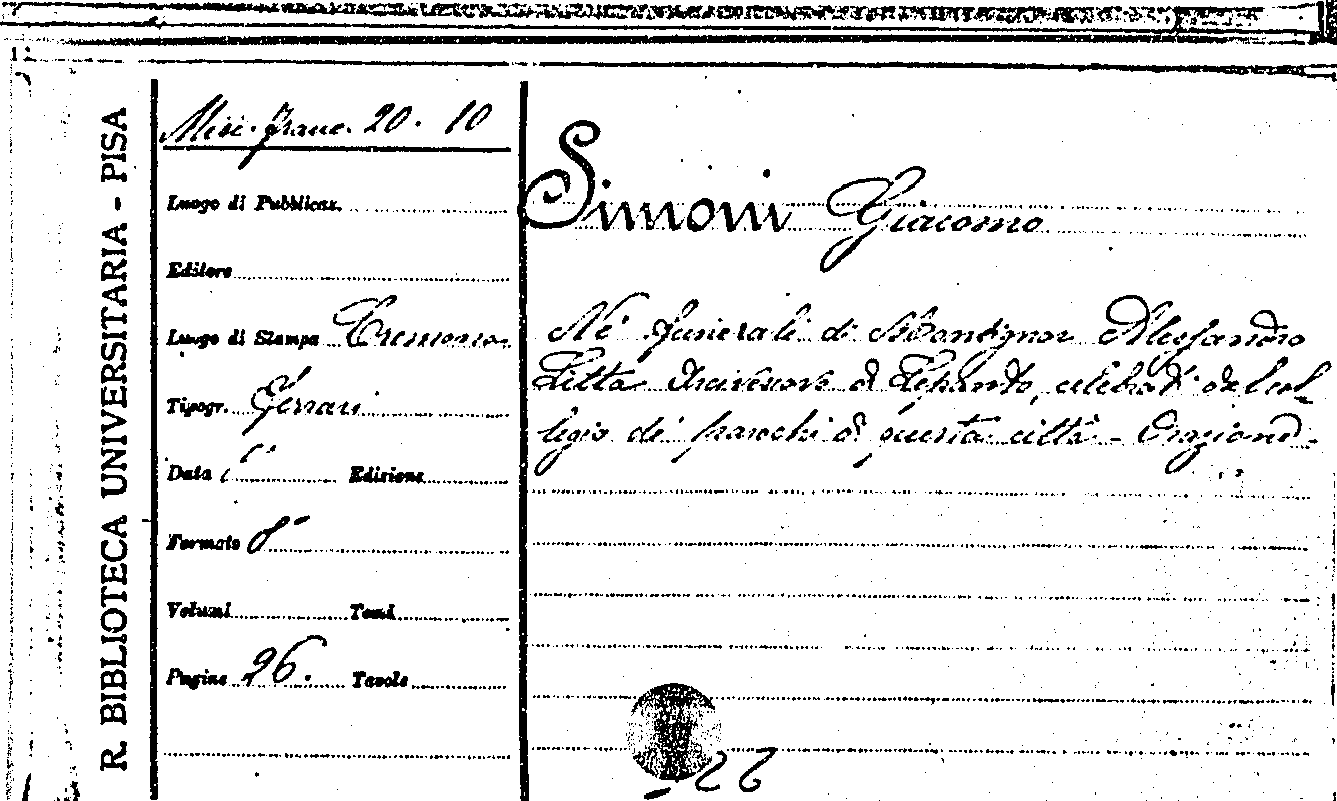 R. BIBLIOTECA UNIVERSITARIA - PISA
Misc. franc. 20. 10
Luogo di Pubblicaz.
Editore
Luogo di Stampa Cremona
Tipogr. Ferrari
Data Edizione
Formato 8°
Volumi Tomi
Pagine 26. Tavole
Simoni Giacomo
Né funerali di Monsignor Alessandro
Litta Arcivescovo di Lepanto, celebrati dal col-
legio dei parrochi di questa città - Orazione.
22